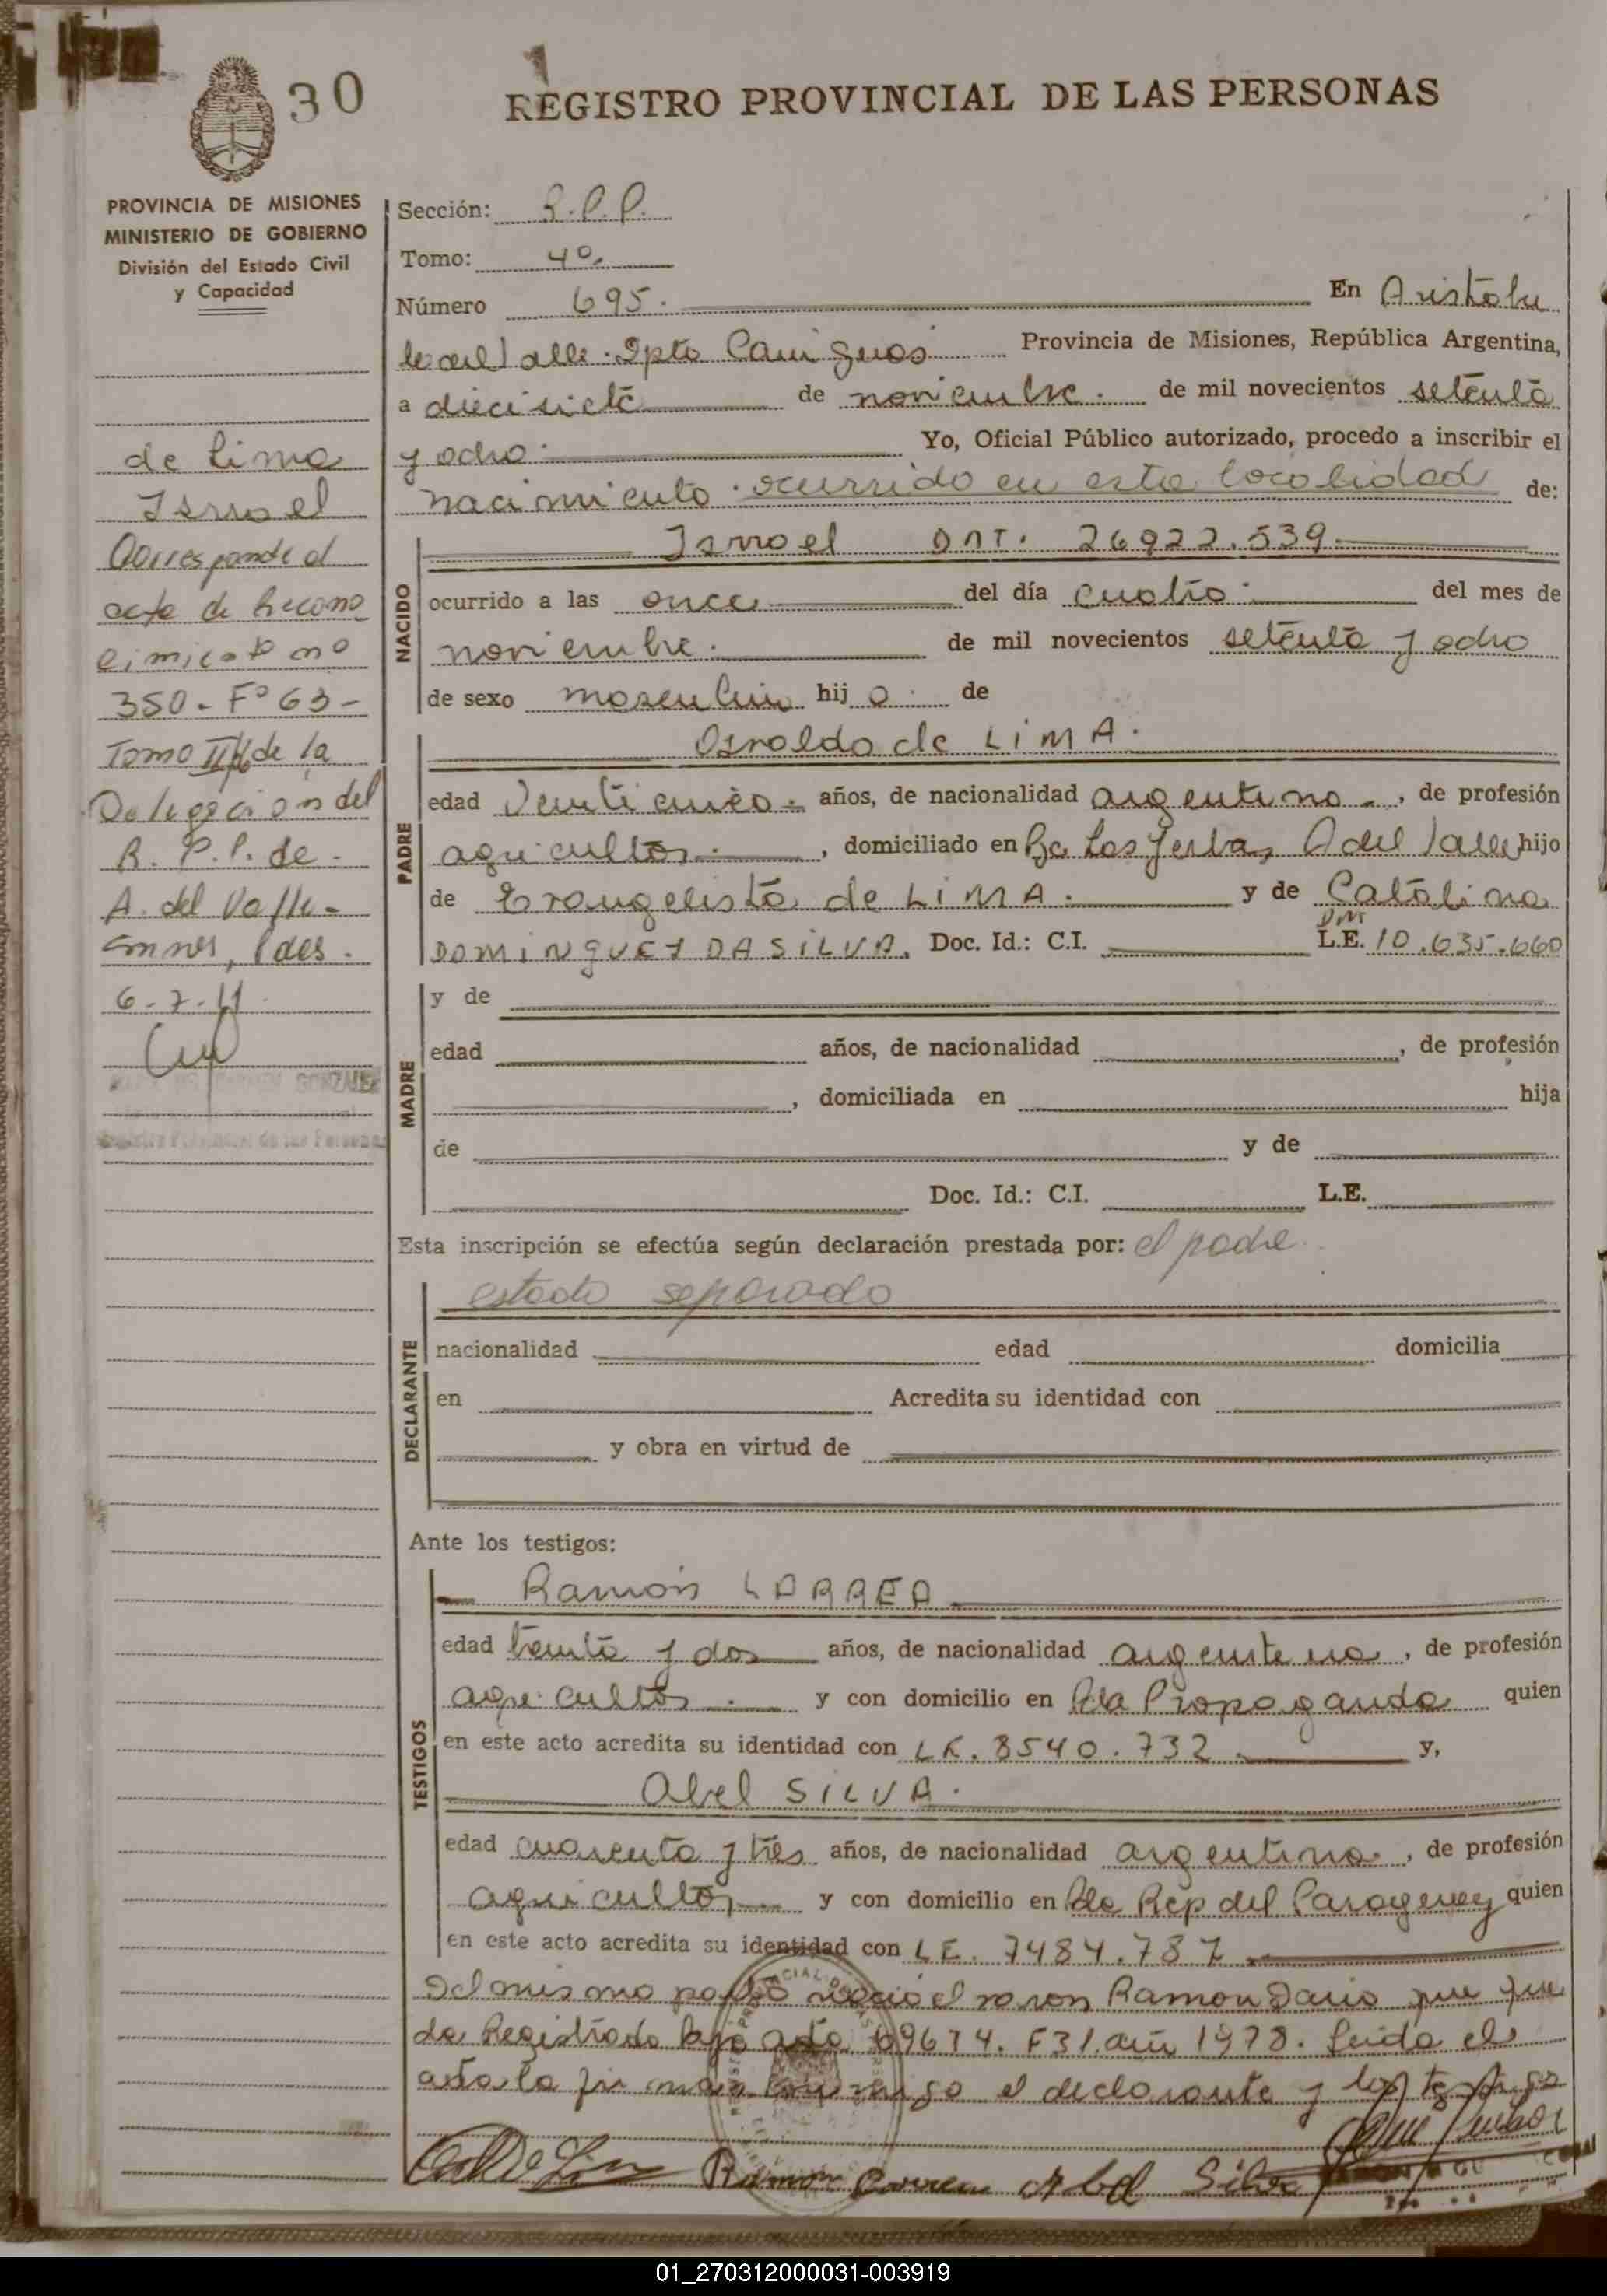 30
REGISTRO PROVINCIAL DE LAS PERSONAS
PROVINCIA DE MISIONES
MINISTERIO DE GOBIERNO
División del Estado Civil
y Capacidad
Sección: R.P.P.
Tomo: 4º
Número 695. En Aristobu
lo del Valle. Dpto Cainguas Provincia de Misiones, República Argentina,
a diecisiete de noviembre. de mil novecientos setenta
y ocho. Yo, Oficial Público autorizado, procedo a inscribir el
nacimiento. ocurrido en esta localidad de:
NACIDO
Isrroel DNI. 26922.539
ocurrido a las once del día cuatro del mes de
noviembre. de mil novecientos setenta y ocho
de sexo masculino hij o. de
PADRE
Osvaldo de LiMA.
edad veinticinco. años, de nacionalidad argentino, de profesión
agricultor., domiciliado en A del Valle hijo
de Evangelista de LiMA. y de Catalina
DOMINGUEZ DA SILVA. Doc. Id.: C.I. DNI L.E. 10.635.660
MADRE
y de
edad años, de nacionalidad , de profesión
, domiciliada en hija
de y de
Doc. Id.: C.I. L.E.
Esta inscripción se efectúa según declaración prestada por: el padre
DECLARANTE
estado separado
nacionalidad edad domicilia
en Acredita su identidad con
y obra en virtud de
Ante los testigos:
TESTIGOS
Ramón LARREA
edad treinta y dos años, de nacionalidad argentina, de profesión
agricultor. y con domicilio en Pda Propaganda quien
en este acto acredita su identidad con L.E. 8540.732. y,
Abel SILVA.
edad cuarenta y tres años, de nacionalidad argentina, de profesión
agricultor y con domicilio en Rep del Paraguay quien
en este acto acredita su identidad con L.E. 7484.787
Del mismo parto nació el varon Ramon Dario que que
da Registrado bajo acta F31. año 1978. Leida el
acta la firman conmigo el declarante y los testigos
Ramon Larrea Abel Silva
de Lima
Isrroel
Corresponde al
acta de Recono
cimiento nº
350 - Fº 63 -
Tomo II de la
Delegacion del
R. P. P. de
A. del Valle -
6-7-
GONZALEZ
Registro Provincial de las Personas
01_270312000031-003919